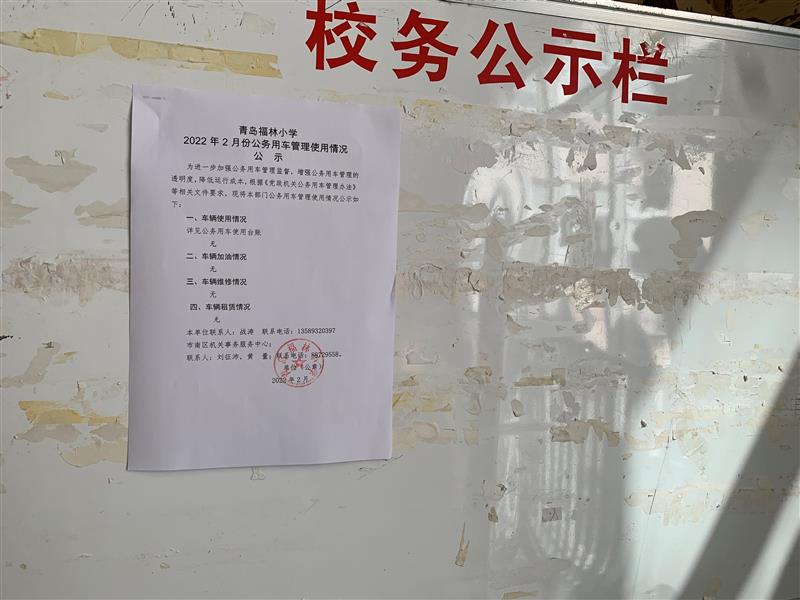 校务公示栏
青岛福林小学
2022 年 2 月份公务用车管理使用情况
公 示
为进一步加强公务用车管理监督，增强公务用车管理的
透明度，降低运行成本，根据《党政机关公务用车管理办法》
等相关文件要求，现将本部门公务用车管理使用情况公示如
下：
一、车辆使用情况
详见公务用车使用台账
无
二、车辆加油情况
无
三、车辆维修情况
无
四、车辆租赁情况
无
本单位联系人：战涛 联系电话：13589320397
市南区机关事务服务中心：
联系人：刘征沛、黄 量；联系电话：88729558。
单位（公章）
2022 年 2 月